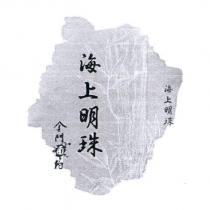 海上明珠
海上明珠